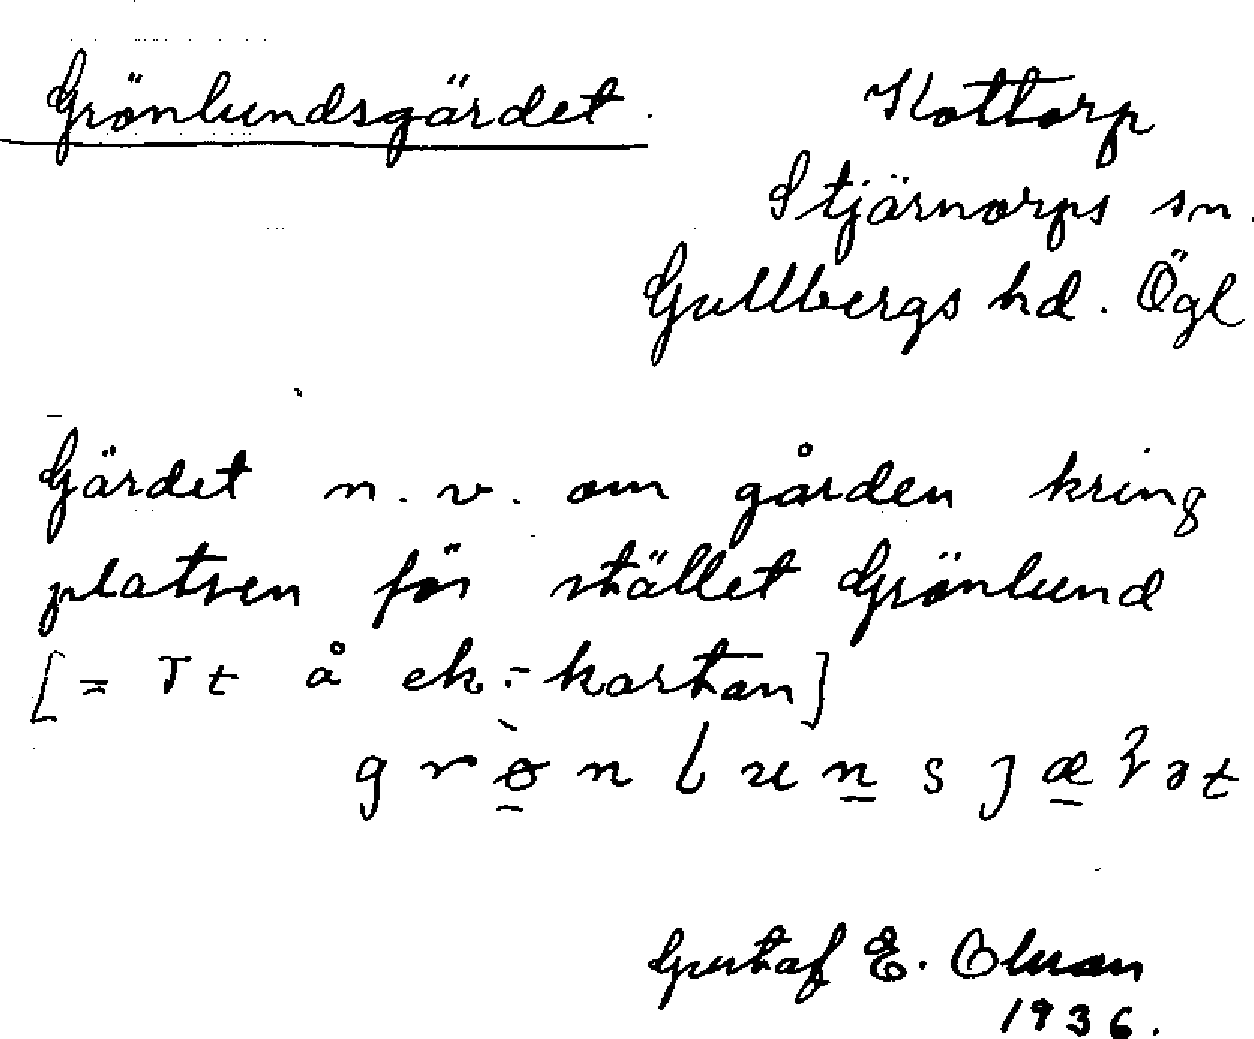 Grönlundsgärdet.
Kottorp
Stjärnorps sn.
Gullbergs hd. Ögl
Gärdet n.v. om gården kring
platsen för stället Grönlund
[= Tt å ek.-kartan]
Gustaf E. Olsson
1936.